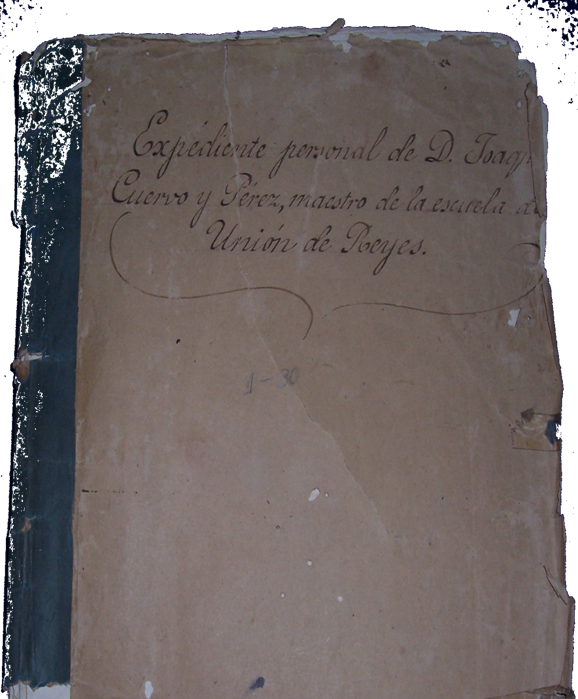 Expediente personal de D. Joaq
Cuervo y Pérez, maestro de la escuela de
Unión de Reyes.
1-30